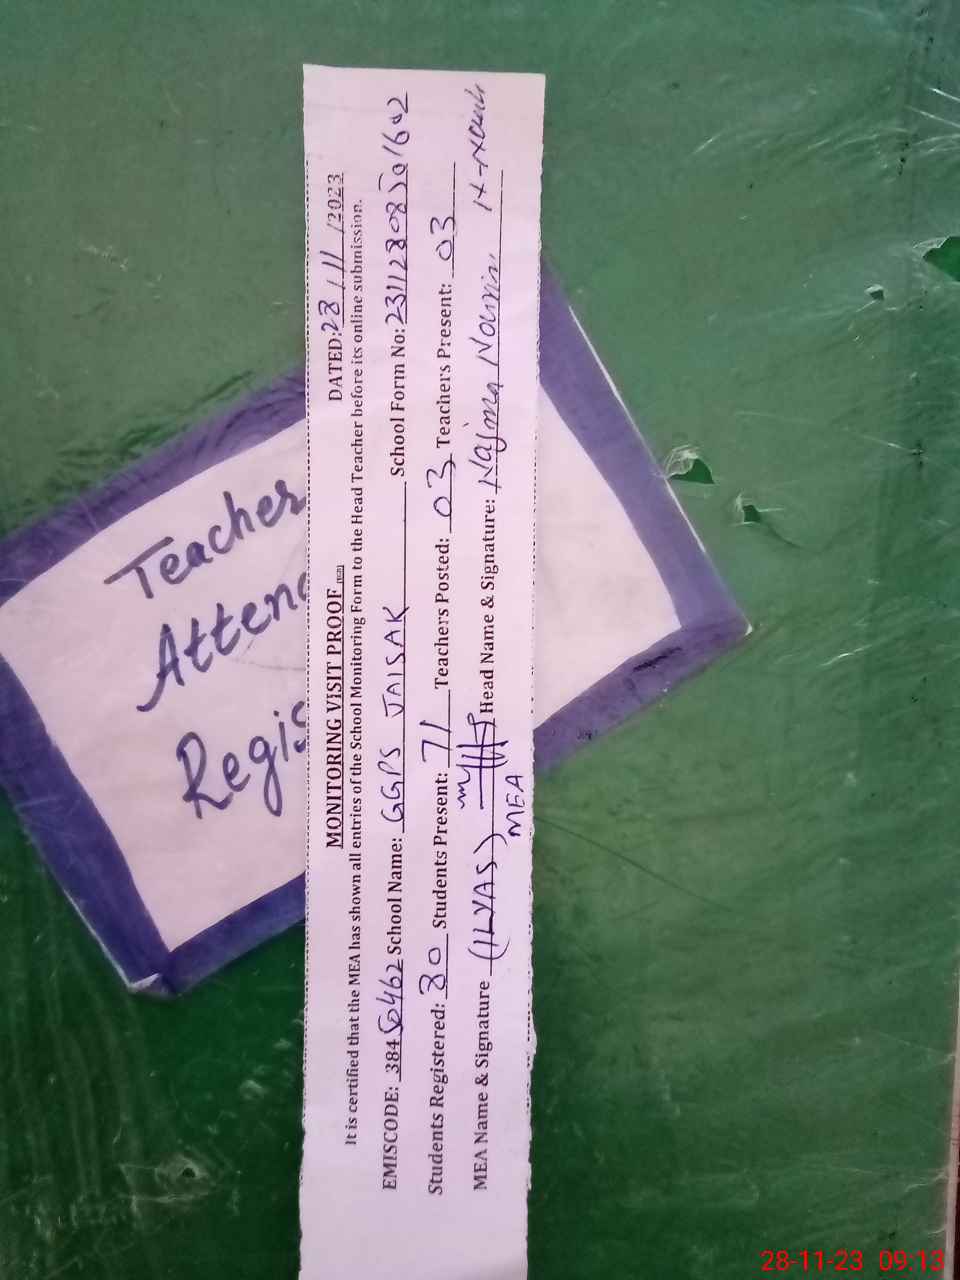 MONITORING VISIT PROOF DATED: 28/11/2023
It is certified that the MEA has shown all entries of the School Monitoring Form to the Head Teacher before its online submission.
EMISCODE: 38450462 School Name: GGPS JAISAK School Form No:
Students Registered: 80 Students Present: 71 Teachers Posted: 03 Teachers Present: 03
MEA Name & Signature (ILYAS) Head Name & Signature: Najma
MEA
Teacher
Atten
Regis
28-11-23 09:13